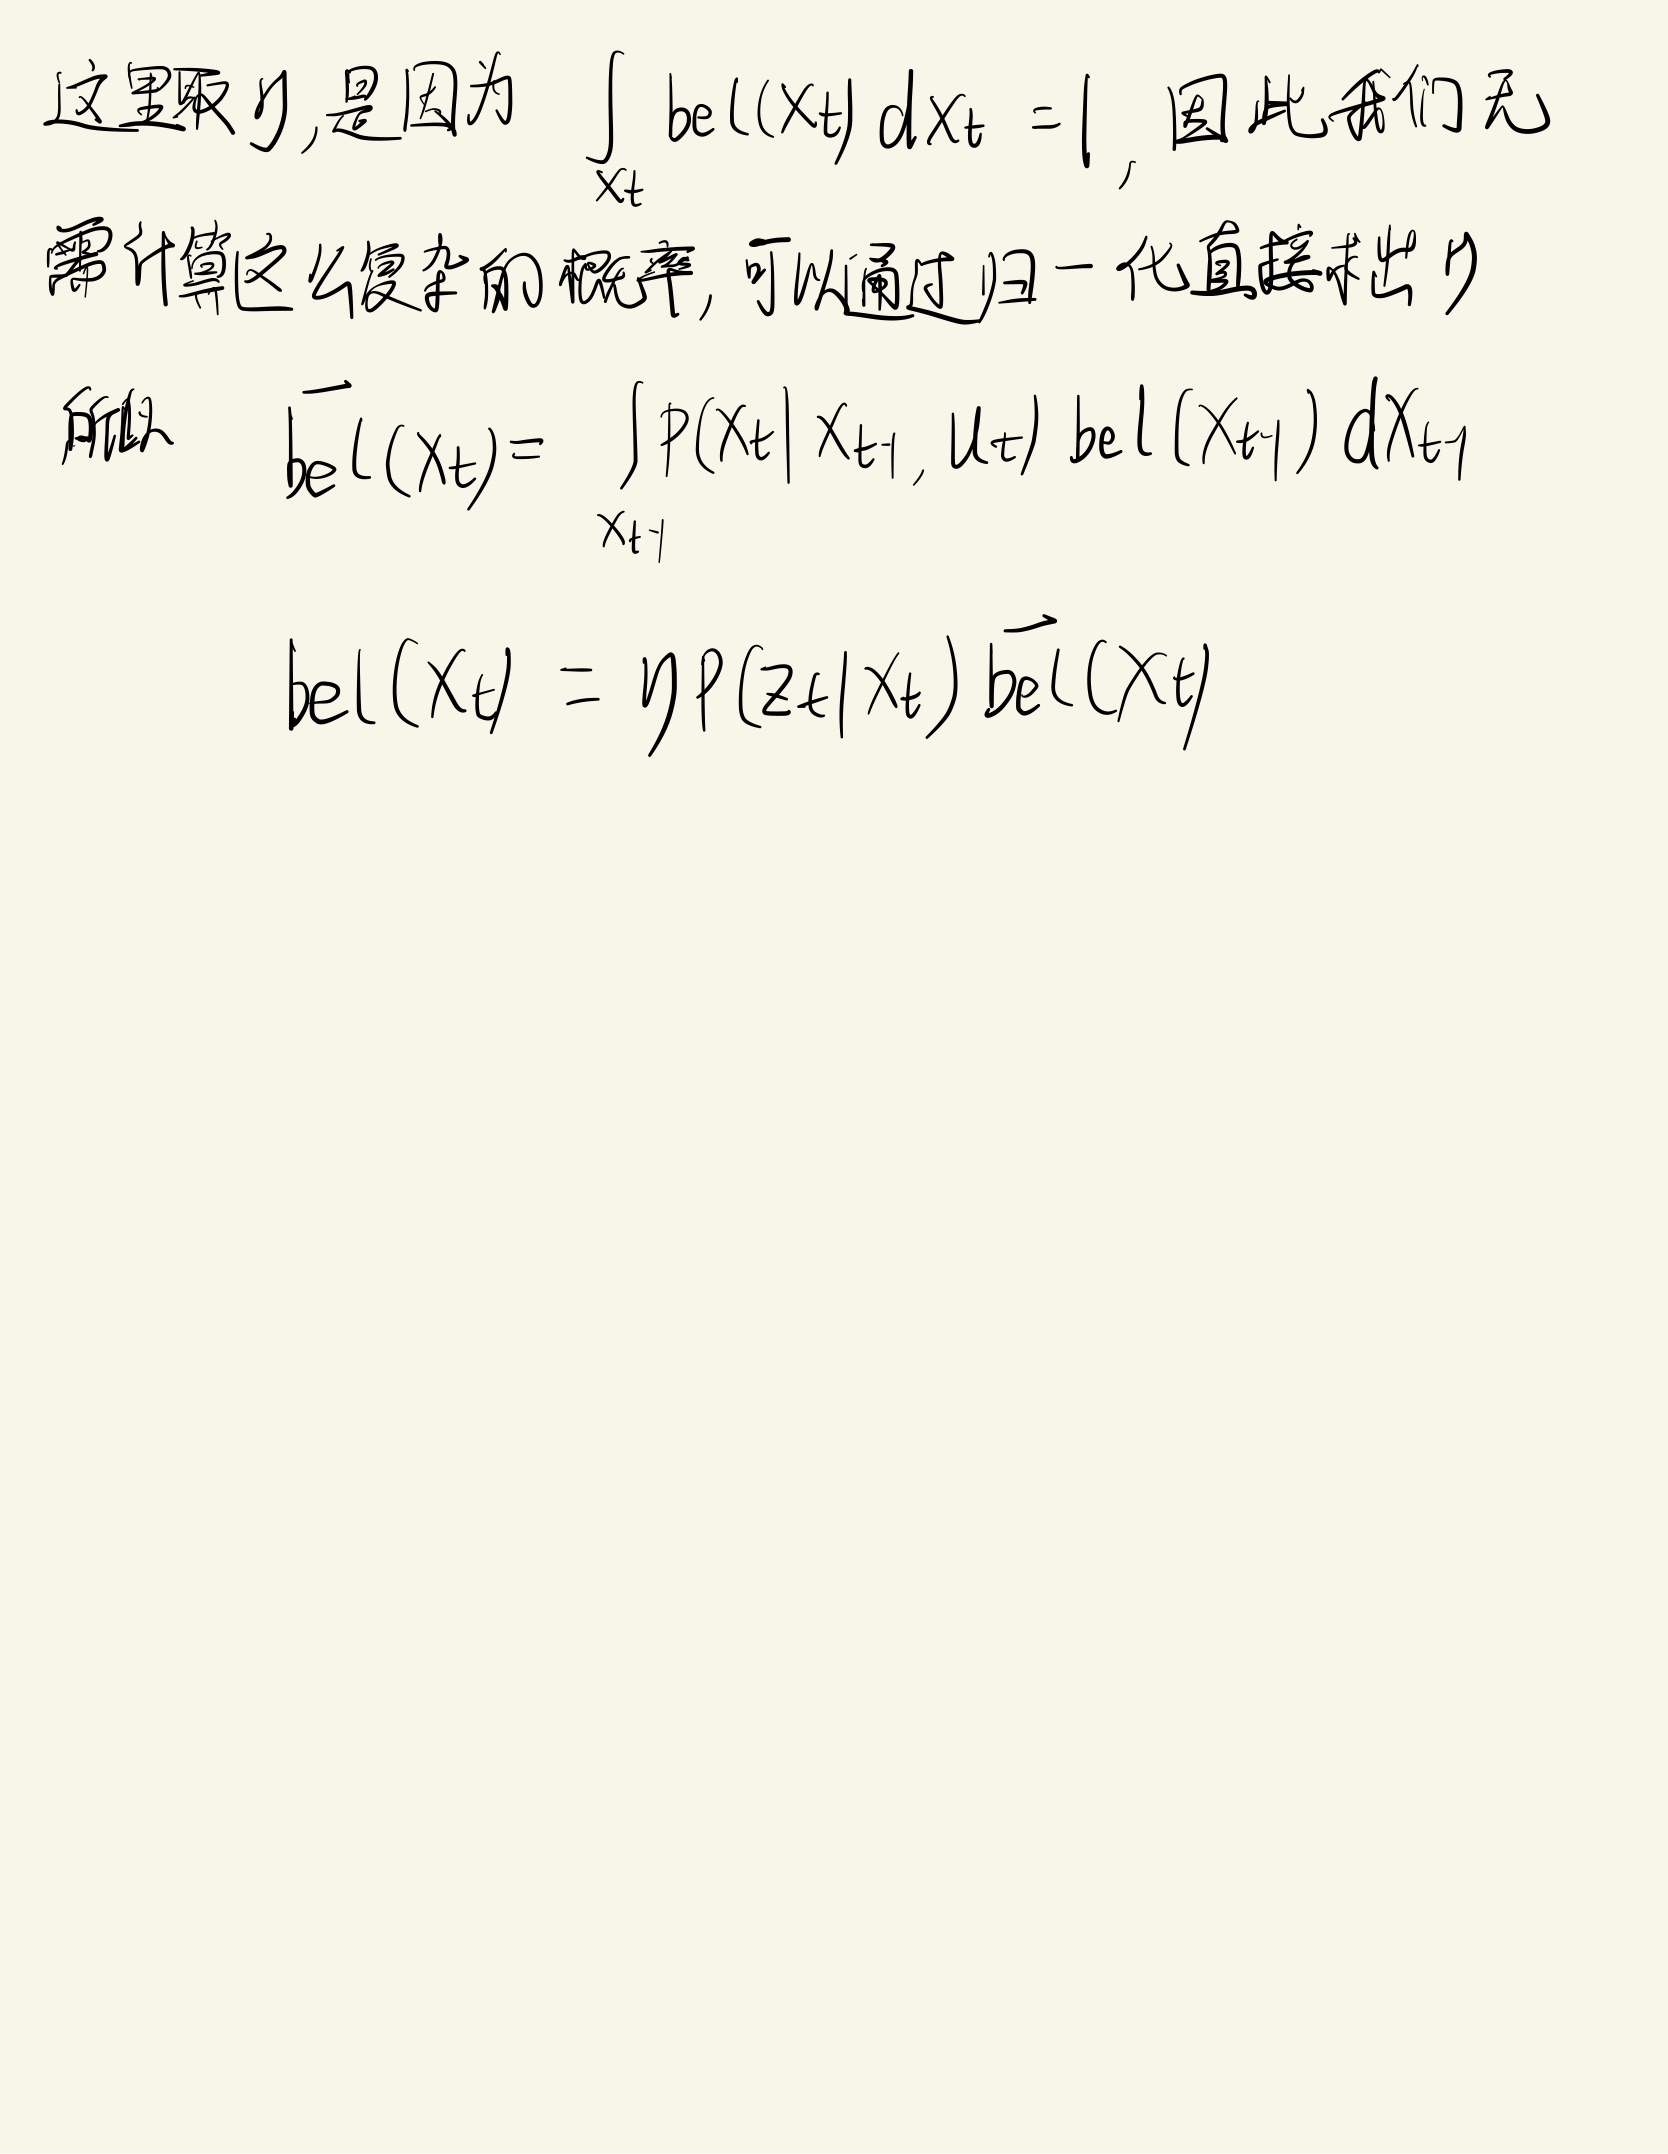 这里取η,是因为 ∫_{x_t} bel(x_t) dx_t = 1, 因此我们无
需计算这么复杂的概率,可以通过归一化直接求出η
所以 \overline{bel}(x_t) = ∫_{x_{t-1}} p(x_t | x_{t-1}, u_t) bel(x_{t-1}) dx_{t-1}
bel(x_t) = η p(z_t | x_t) \overline{bel}(x_t)